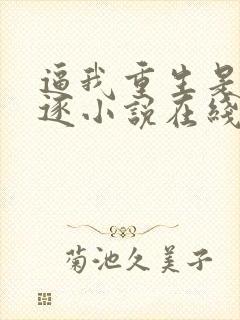 逼我重生是
逐小說在綫
菊池久美子